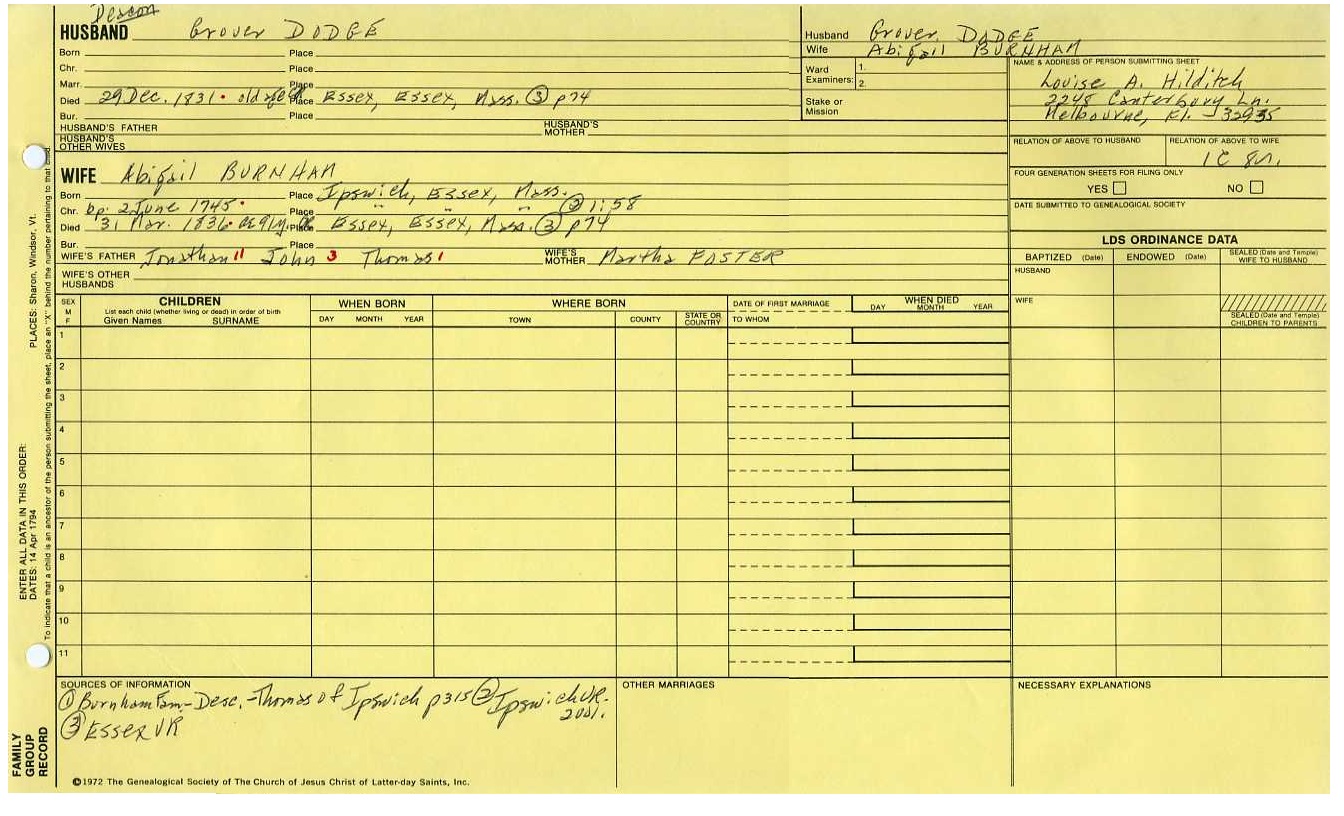 Deacon
HUSBAND Grover DODGE
Born Place
Chr. Place
Marr. Place
Died 29 Dec. 1831. old age Place Essex, Essex, Mass. ③ p74
Bur. Place
HUSBAND'S FATHER HUSBAND'S MOTHER
HUSBAND'S OTHER WIVES
WIFE Abigail BURNHAM
Born Place Ipswich, Essex, Mass.
Chr. bp. 2 June 1745. Place " " " ② 1:58
Died 31 Mar. 1836. ae 91y. Place Essex, Essex, Mass. ③ p74
Bur. Place
WIFE'S FATHER Jonathan 11 John 3 Thomas 1 WIFE'S MOTHER Martha FOSTER
WIFE'S OTHER HUSBANDS
Husband Grover DODGE
Wife Abigail BURNHAM
Ward Examiners: 1.
2.
Stake or Mission
NAME & ADDRESS OF PERSON SUBMITTING SHEET
Louise A. Hilditch
2248 Canterbury Ln.
Melbourne, Fl. 32935
RELATION OF ABOVE TO HUSBAND RELATION OF ABOVE TO WIFE
1C 8r.
FOUR GENERATION SHEETS FOR FILING ONLY
YES NO
DATE SUBMITTED TO GENEALOGICAL SOCIETY
LDS ORDINANCE DATA
BAPTIZED (Date) ENDOWED (Date) SEALED (Date and Temple) WIFE TO HUSBAND
HUSBAND
WIFE
SEALED (Date and Temple) CHILDREN TO PARENTS
SEX M F
CHILDREN
List each child (whether living or dead) in order of birth
Given Names SURNAME
WHEN BORN
DAY MONTH YEAR
WHERE BORN
TOWN COUNTY STATE OR COUNTRY
DATE OF FIRST MARRIAGE
TO WHOM
WHEN DIED
DAY MONTH YEAR
1
2
3
4
5
6
7
8
9
10
11
SOURCES OF INFORMATION
① Burnham Fam.-Desc.-Thomas of Ipswich p315 ② Ipswich VR-
2vol.
③ Essex VR
OTHER MARRIAGES
NECESSARY EXPLANATIONS
©1972 The Genealogical Society of The Church of Jesus Christ of Latter-day Saints, Inc.
FAMILY GROUP RECORD
ENTER ALL DATA IN THIS ORDER:
DATES: 14 Apr 1794 PLACES: Sharon, Windsor, Vt.
To indicate that a child is an ancestor of the person submitting the sheet, place an "X" behind the number pertaining to that child.